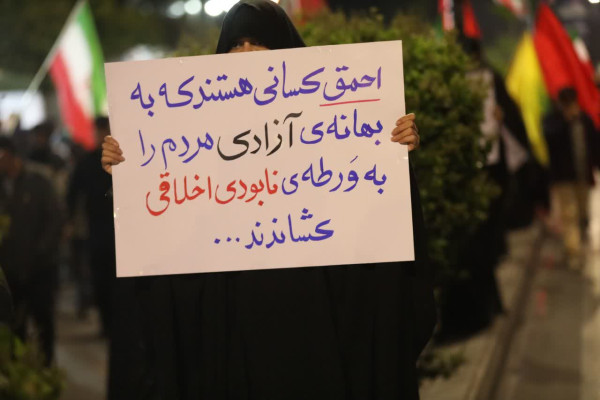 احمق کسانی هستند که به
بهانه‌ی آزادی مردم را
به وَرطه‌ی نابودی اخلاقی
کشاندند ...